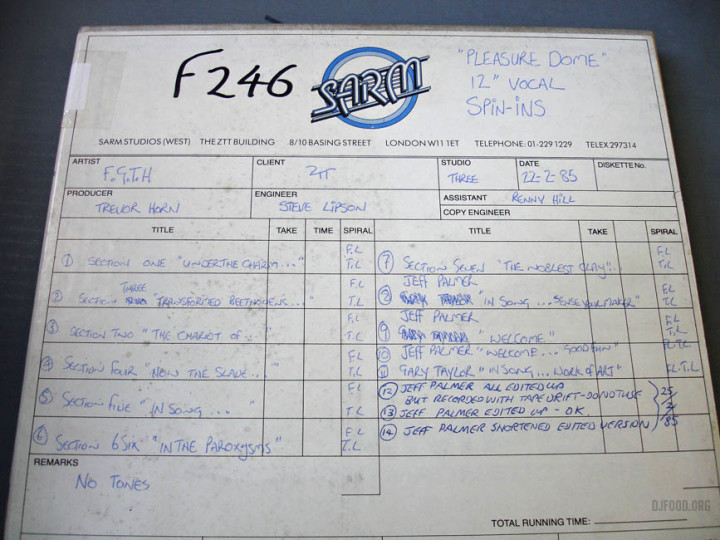 F246
SARM
"PLEASURE DOME"
12" VOCAL
SPIN-INS
SARM STUDIOS (WEST) THE ZTT BUILDING 8/10 BASING STREET LONDON W11 1ET TELEPHONE: 01-229 1229 TELEX 297314
ARTIST F.G.T.H CLIENT ZTT STUDIO THREE DATE 22-2-85 DISKETTE No.
PRODUCER TREVOR HORN ENGINEER STEVE LIPSON ASSISTANT RENNY HILL
COPY ENGINEER
TITLE TAKE TIME SPIRAL TITLE TAKE SPIRAL
1 SECTION ONE "UNDER THE CHARM..." F.L T.L
2 SECTION THREE TRANSFORMED BEETHOVENS..." F.L T.L
3 SECTION TWO "THE CHARIOT OF..." F.L T.L
4 SECTION FOUR "NOW THE SLAVE..." F.L T.L
5 SECTION FIVE "IN SONG... " F.L T.L
6 SECTION 6SIX "IN THE PAROXYSMS" F.L T.L
7 SECTION SEVEN "THE NOBLEST CLAY".. F.L T.L
JEFF PALMER
8 "IN SONG... SENSE YOUR MAKER" F.L T.L
JEFF PALMER
9 "WELCOME" F.L T.L
10 JEFF PALMER "WELCOME... F.L T.L
11 GARY TAYLOR "IN SONG... WORK OF ART" F.L T.L
12 JEFF PALMER ALL EDITED UP
BUT RECORDED WITH TAPE DRIFT-DO NOT USE
13 JEFF PALMER EDITED UP - OK.
14 JEFF PALMER SHORTENED EDITED VERSION
25/2/85
REMARKS
NO TONES
TOTAL RUNNING TIME:
DJFOOD.ORG